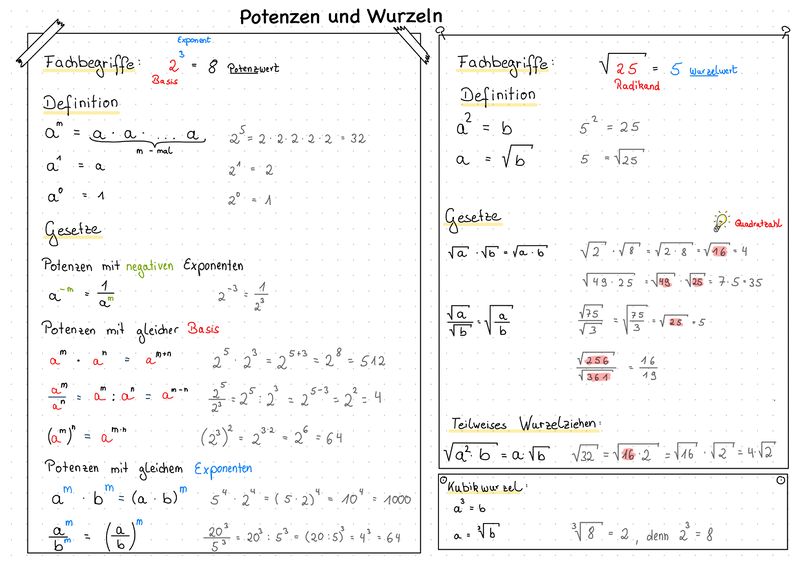 Potenzen und Wurzeln
Exponent
Fachbegriffe: 2³ = 8 Potenzwert
Basis
Definition
aᵐ = a · a · ... a
m - mal
2⁵ = 2 · 2 · 2 · 2 · 2 = 32
a¹ = a 2¹ = 2
a⁰ = 1 2⁰ = 1
Gesetze
Potenzen mit negativen Exponenten
a⁻ᵐ = 1/aᵐ 2⁻³ = 1/2³
Potenzen mit gleicher Basis
aᵐ · aⁿ = aᵐ⁺ⁿ 2⁵ · 2³ = 2⁵⁺³ = 2⁸ = 512
aᵐ/aⁿ = aᵐ : aⁿ = aᵐ⁻ⁿ 2⁵/2³ = 2⁵ : 2³ = 2⁵⁻³ = 2² = 4
(aᵐ)ⁿ = aᵐ·ⁿ (2³)² = 2³·² = 2⁶ = 64
Potenzen mit gleichem Exponenten
aᵐ · bᵐ = (a · b)ᵐ 5⁴ · 2⁴ = (5 · 2)⁴ = 10⁴ = 1000
aᵐ/bᵐ = (a/b)ᵐ 20³/5³ = 20³ : 5³ = (20 : 5)³ = 4³ = 64
Fachbegriffe: √25 = 5 Wurzelwert
Radikand
Definition
a² = b 5² = 25
a = √b 5 = √25
Gesetze
Quadratzahl
√a · √b = √(a · b) √2 · √8 = √(2 · 8) = √16 = 4
√(49 · 25) = √49 · √25 = 7 · 5 = 35
√a/√b = √(a/b) √75/√3 = √(75/3) = √25 = 5
√256/√361 = 16/19
Teilweises Wurzelziehen:
√(a² · b) = a · √b √32 = √(16 · 2) = √16 · √2 = 4 · √2
Kubikwurzel:
a³ = b
a = ³√b ³√8 = 2, denn 2³ = 8